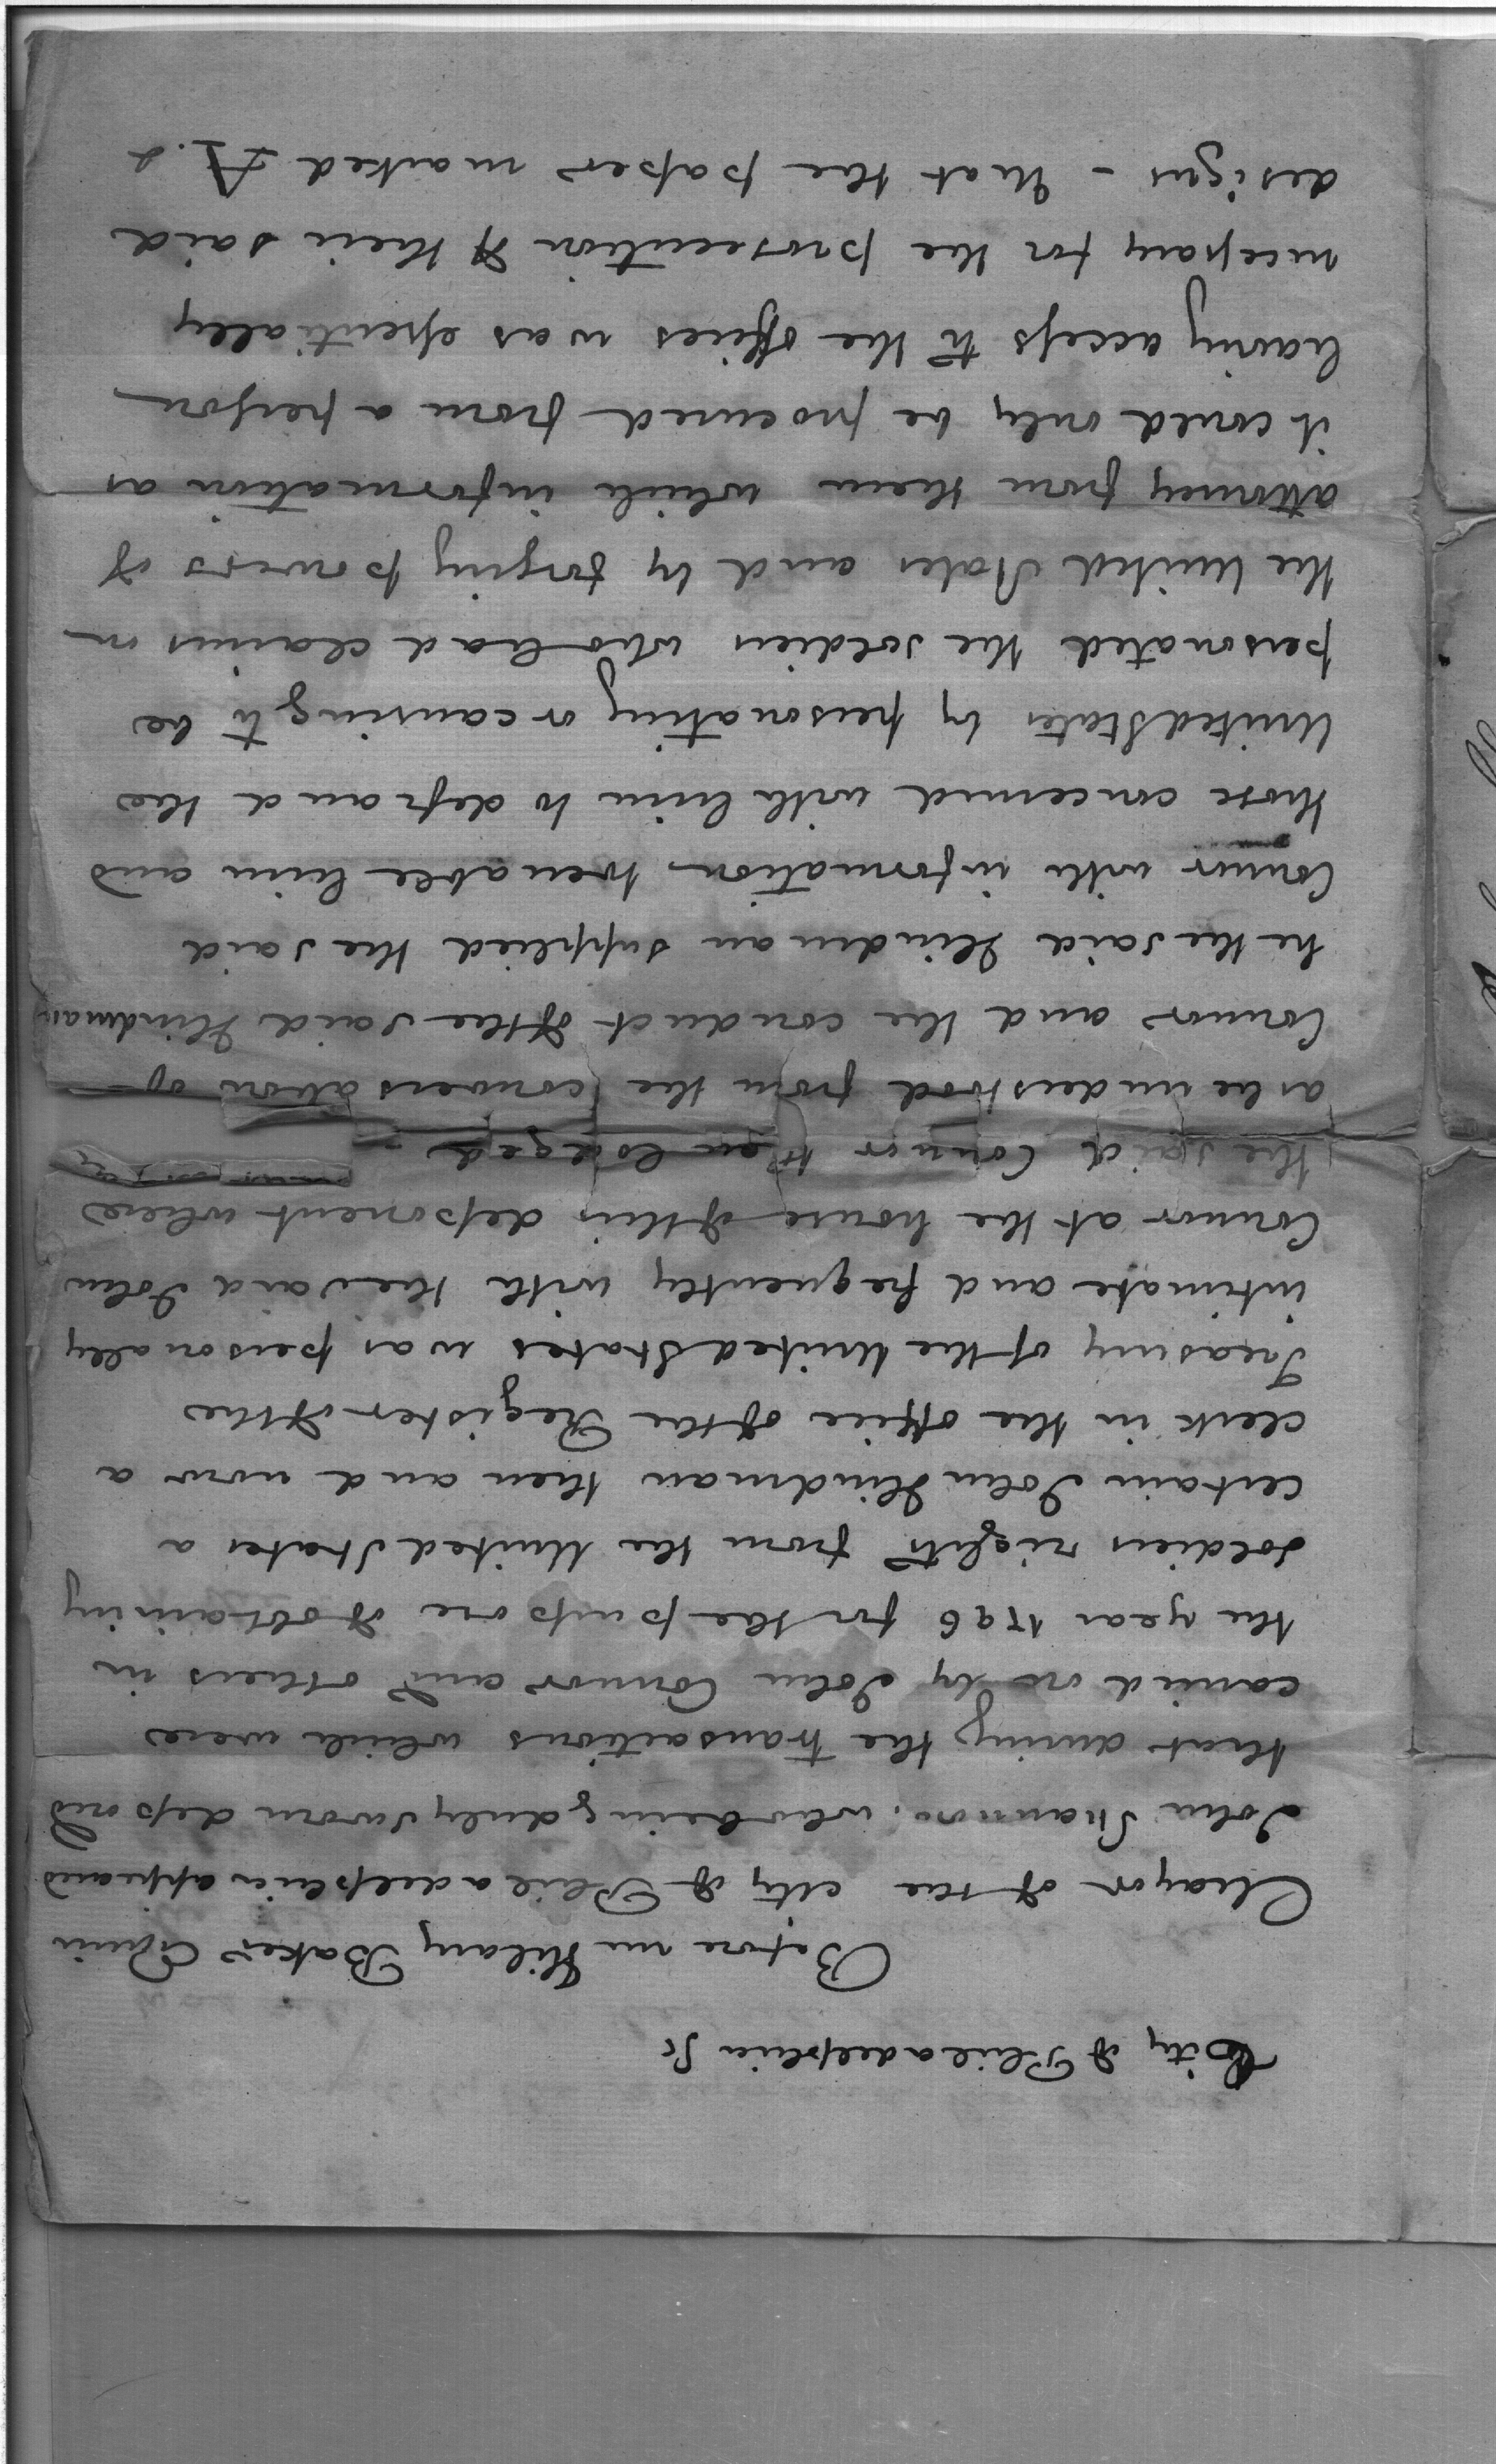 City of Philadelphia Ss
Before me Hilary Baker Esquire
Mayor of the City of Philadelphia appeared
John Shannon, who being duly sworn deposed
that during the transactions which were
carried on by John Connor and others in
the year 1796 for the purpose of obtaining
soldiers rights from the United States a
certain John Hindman then and now a
clerk in the office of the Register of the
Treasury of the United States was personally
intimate and frequently with the said John
Connor at the house of this deponent where
the said Connor then lodged –
as he understood from the conversation of
Connor and the conduct of the said Hindman
he the said Hindman supplied the said
Connor with information to enable him and
those concerned with him to defraud the
United States by personating or causing to be
personated the soldiers who had claims on
the United States and by forging powers of
attorney from them which information as
it could only be procured from a person
having access to the offices was essentially
necessary for the prosecution of their said
designs – that the paper marked A. 2